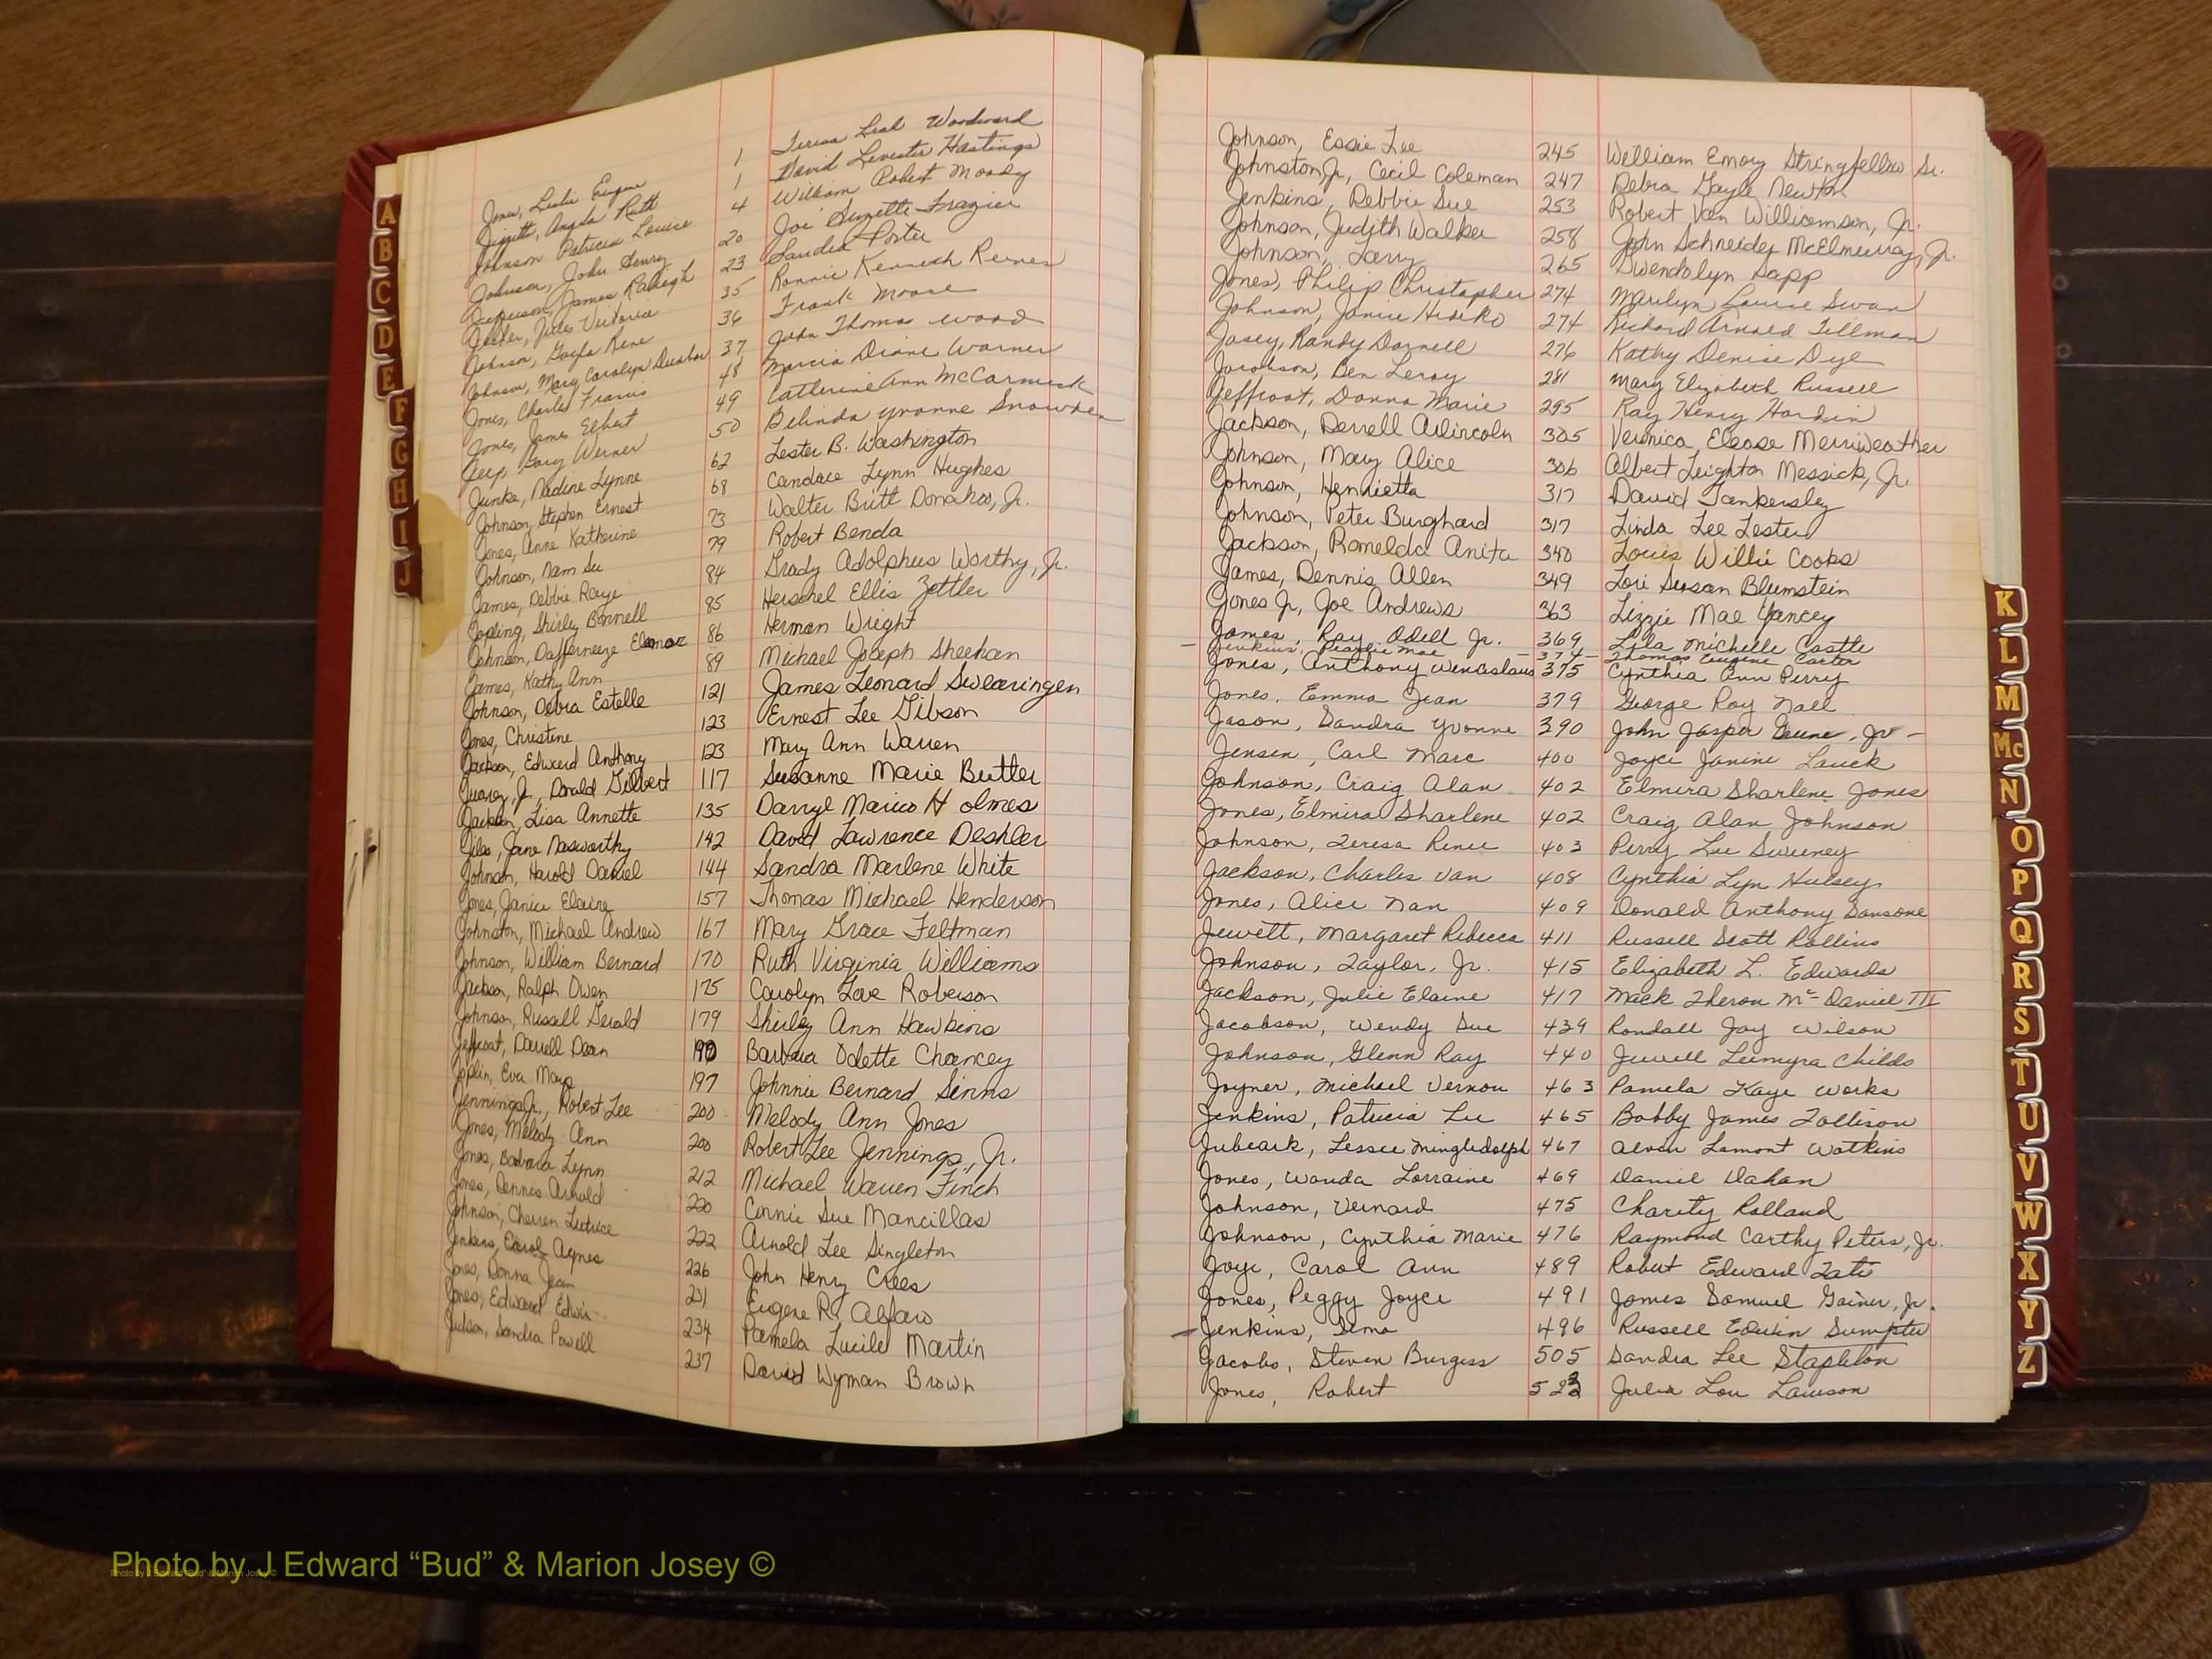 A
B
C
D
E
F
G
H
I
J
Jones, Leslie Eugene 1 Teresa Leah Woodward
Angela Ruth 1 David Levester Hastings
Johnson Patricia Louise 4 William Robert Moody
Johnson, John Henry 20 Joi Suzette Frazier
Jefferson, James Raleigh 23 Sandra Porter
Jeeter, Julie Victoria 35 Ronnie Kenneth Reeves
Johnson, Gayla Rene 36 Frank Moore
Johnson, Mary Carolyn Dunbar 37 John Thomas Wood
Jones, Charles Francis 48 Marcia Diane Warner
Jones, James Elbert 49 Catherine Ann McCormick
Jeep, Gary Werner 50 Belinda Yvonne Snowden
Junke, Nadine Lynne 62 Lester B. Washington
Johnson, Stephen Ernest 68 Candace Lynn Hughes
Jones, Anne Katherine 73 Walter Britt Donahoo, Jr.
Johnson, Nam Su 79 Robert Benda
James, Debbie Raye 84 Grady Adolphus Worthy, Jr.
Jopling, Shirley Bonnell 85 Herschel Ellis Zettler
Johnson, Dafferneeze Elanor 86 Herman Wright
James, Kathy Ann 89 Michael Joseph Sheehan
Johnson, Debra Estelle 121 James Leonard Swearingen
Jones, Christine 123 Ernest Lee Gibson
Jackson, Edward Anthony 123 Mary Ann Warren
Juarez, Jr., Donald Gilbert 117 Susanne Marie Butler
Jackson, Lisa Annette 135 Darryl Marico Holmes
Jiles, Jane Nasworthy 142 David Lawrence Deshler
Johnson, Harold Daniel 144 Sandra Marlene White
Jones, Janice Elaine 157 Thomas Michael Henderson
Johnston, Michael Andrew 167 Mary Grace Feltman
Johnson, William Bernard 170 Ruth Virginia Williams
Jackson, Ralph Owen 175 Carolyn Love Roberson
Johnson, Russell Gerald 179 Shirley Ann Hawkins
Jeffcoat, Darrell Dean 190 Barbara Odette Chancey
Joplin, Eva Mays 197 Johnnie Bernard Sinns
Jennings Jr., Robert Lee 200 Melody Ann Jones
Jones, Melody Ann 200 Robert Lee Jennings, Jr.
Jones, Barbara Lynn 212 Michael Warren Finch
Jones, Dennis Arnold 220 Connie Sue Mancillas
Johnson, Cherren Letrice 222 Arnold Lee Singleton
Jenkins, Carol Agnes 226 John Henry Crees
Jones, Donna Jean 231 Eugene R. Alfaro
Jones, Edward Edwin 234 Pamela Lucile Martin
Judson, Sandra Powell 237 David Wyman Brown
Johnson, Essie Lee 245 William Emory Stringfellow Sr.
Johnston Jr., Cecil Coleman 247 Debra Gayle Newton
Jenkins, Debbie Sue 253 Robert Van Williamson, Jr.
Johnson, Judith Walker 258 John Schneider McElmurray, Jr.
Johnson, Larry 265 Gwendolyn Sapp
Jones, Philip Christopher 274 Marilyn Louise Swan
Johnson, Janice Hideko 274 Richard Arnold Tillman
Josey, Randy Darnell 276 Kathy Denise Dye
Jacobson, Ben Leroy 281 Mary Elizabeth Russell
Jeffcoat, Donna Marie 295 Ray Henry Hardin
Jackson, Derrell Avlincoln 305 Veronica Elease Merriweather
Johnson, Mary Alice 306 Albert Leighton Messick, Jr.
Johnson, Henrietta 317 David Tankersley
Johnson, Peter Burghard 317 Linda Lee Lester
Jackson, Romelda Anita 340 Louis Willie Cooks
James, Dennis Allen 349 Lori Susan Blumstein
Jones Jr, Joe Andrews 363 Lizzie Mae Yancey
James, Ray Odell Jr. 369 Lila Michelle Castle
– Jenkins, Pearlie Mae – 374 – Thomas Eugene Carter
Jones, Anthony Wenceslaus 375 Cynthia Ann Perry
Jones, Emma Jean 379 George Roy Nall
Jason, Sandra Yvonne 390 John Jasper Greene, Jr –
Jensen, Carl Marc 400 Joyce Janine Lauck
Johnson, Craig Alan 402 Elmira Sharlene Jones
Jones, Elmira Sharlene 402 Craig Alan Johnson
Johnson, Teresa Renee 403 Perry Lee Sweeney
Jackson, Charles Van 408 Cynthia Lyn Hulsey
Jones, Alice Nan 409 Donald Anthony Sansone
Jewett, Margaret Rebecca 411 Russell Scott Rollins
Johnson, Taylor, Jr. 415 Elizabeth L. Edwards
Jackson, Julie Elaine 417 Mack Theron McDaniel III
Jacobson, Wendy Sue 439 Randall Jay Wilson
Johnson, Glenn Ray 440 Jewell Leemyra Childs
Joyner, Michael Vernon 463 Pamela Kaye Works
Jenkins, Patricia Lee 465 Bobby James Tollison
Jubeark, Lessie Mingledolph 467 Alvin Lamont Watkins
Jones, Wanda Lorraine 469 Daniel Dahan
Johnson, Vernard 475 Charity Rolland
Johnson, Cynthia Marie 476 Raymond Carthy Peters, Jr.
Joye, Carol Ann 489 Robert Edward Tate
Jones, Peggy Joyce 491 James Samuel Gainer, Jr.
– Jenkins, Sema 496 Russell Edwin Sumpter
Jacobs, Steven Burgess 505 Sandra Lee Stapleton
Jones, Robert 523 Julia Lou Lawson
K
L
M
Mc
N
O
P
Q
R
S
T
U
V
W
X
Y
Z
Photo by J Edward “Bud” & Marion Josey ©
Photo by J Edward “Bud” & Marion Josey ©